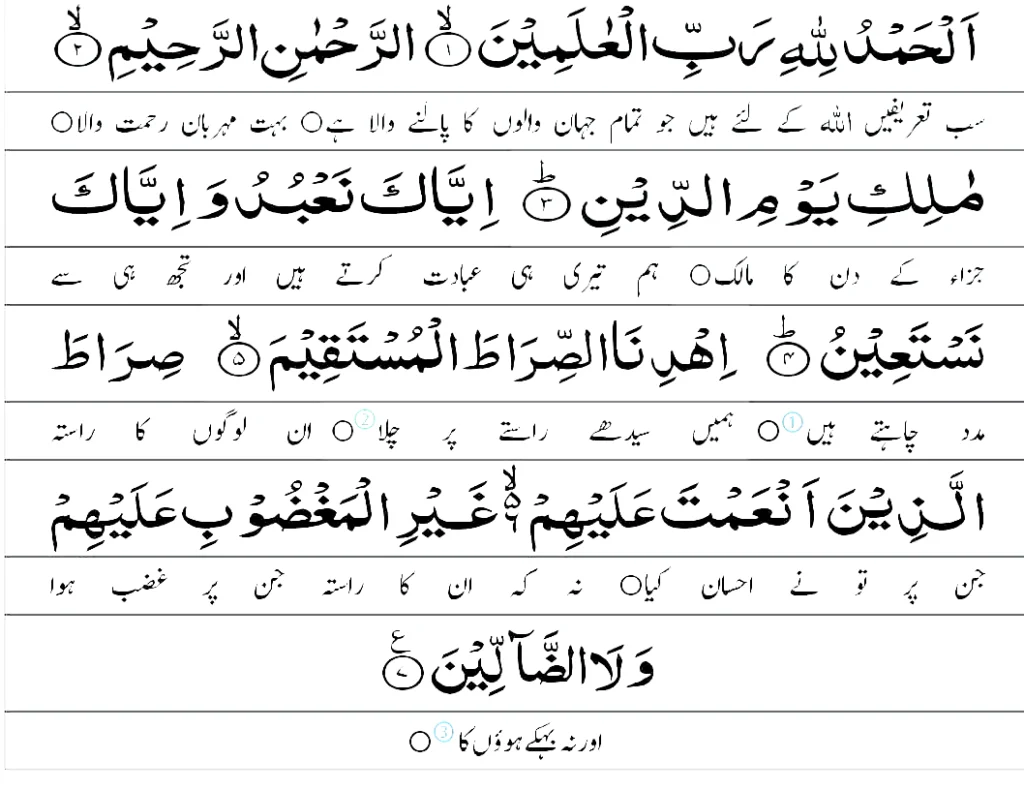 اَلْحَمْدُ لِلّٰهِ رَبِّ الْعٰلَمِيْنَ ۙ﴿۱﴾ الرَّحْمٰنِ الرَّحِيْمِ ۙ﴿۲﴾
سب تعریفیں اللہ کے لئے ہیں جو تمام جہان والوں کا پالنے والا ہے○ بہت مہربان رحمت والا○
مٰلِكِ يَوْمِ الدِّيْنِ ؕ﴿۳﴾ اِيَّاكَ نَعْبُدُ وَ اِيَّاكَ
جزاء کے دن کا مالک○ ہم تیری ہی عبادت کرتے ہیں اور تجھ ہی سے
نَسْتَعِيْنُ ؕ﴿۴﴾ اِهْدِنَا الصِّرَاطَ الْمُسْتَقِيْمَ ۙ﴿۵﴾ صِرَاطَ
مدد چاہتے ہیں①○ ہمیں سیدھے راستے پر چلا②○ ان لوگوں کا راستہ
الَّذِيْنَ اَنْعَمْتَ عَلَيْهِمْ ۙ۵ ۶ غَيْرِ الْمَغْضُوْبِ عَلَيْهِمْ
جن پر تو نے احسان کیا○ نہ کہ ان کا راستہ جن پر غضب ہوا
وَلَا الضَّآلِّيْنَ ﴿۷﴾ ع
اور نہ بہکے ہوؤں کا③○